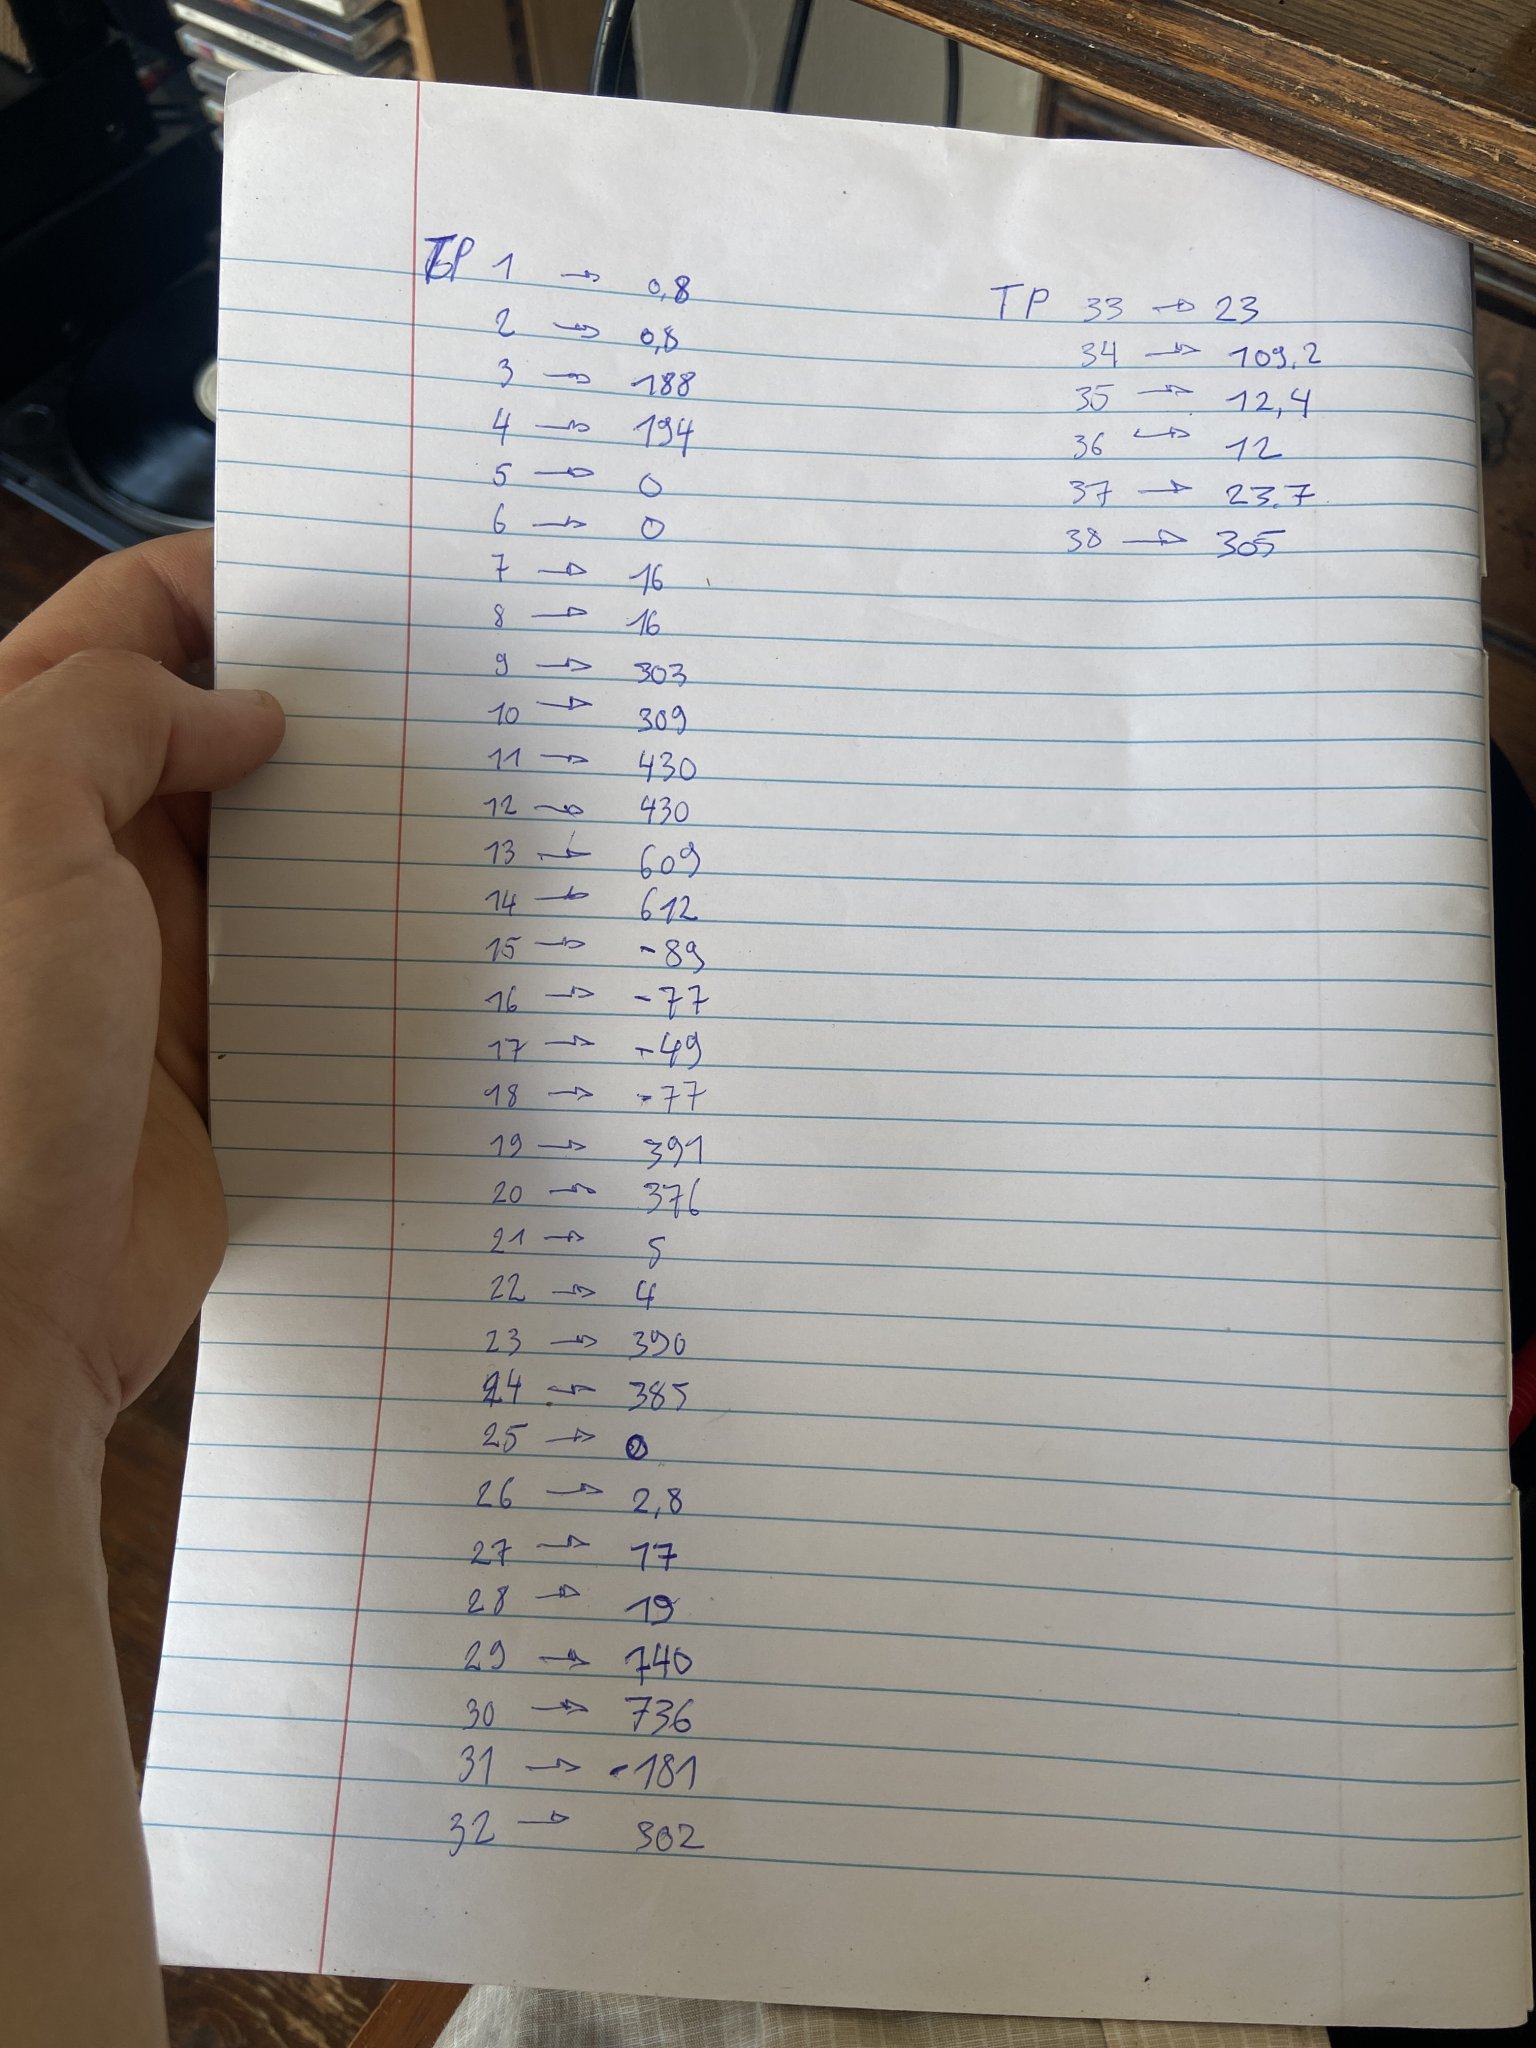 TP 1 → 0,8
2 → 0,8
3 → 188
4 → 194
5 → 0
6 → 0
7 → 16
8 → 16
9 → 303
10 → 309
11 → 430
12 → 430
13 → 609
14 → 612
15 → -89
16 → -77
17 → -49
18 → -77
19 → 391
20 → 376
21 → 5
22 → 4
23 → 390
24 → 385
25 → 0
26 → 2,8
27 → 17
28 → 19
29 → 740
30 → 736
31 → -181
32 → 302
TP 33 → 23
34 → 109.2
35 → 12,4
36 → 12
37 → 23.7
38 → 305